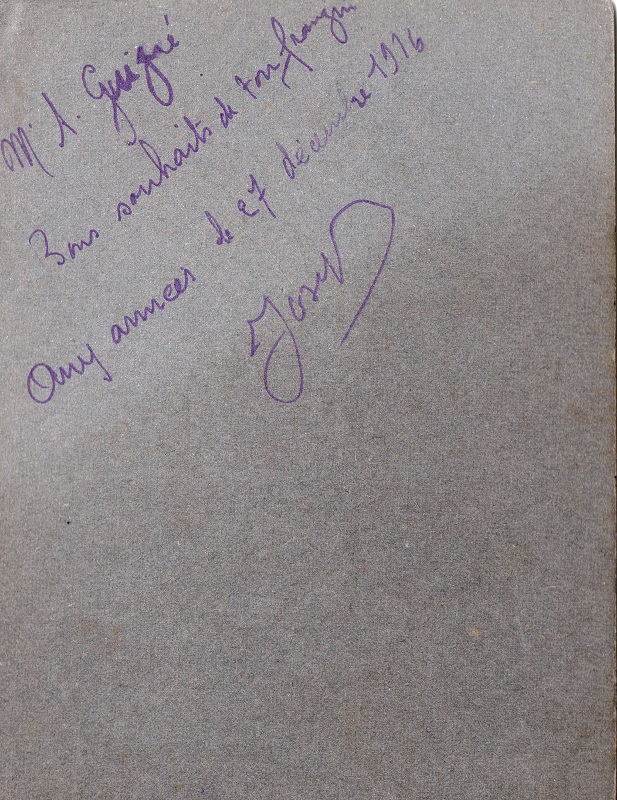 Mr A. Guigné
Bons souhaits de ton frangin
Aux armées le 27 décembre 1916
Joseph